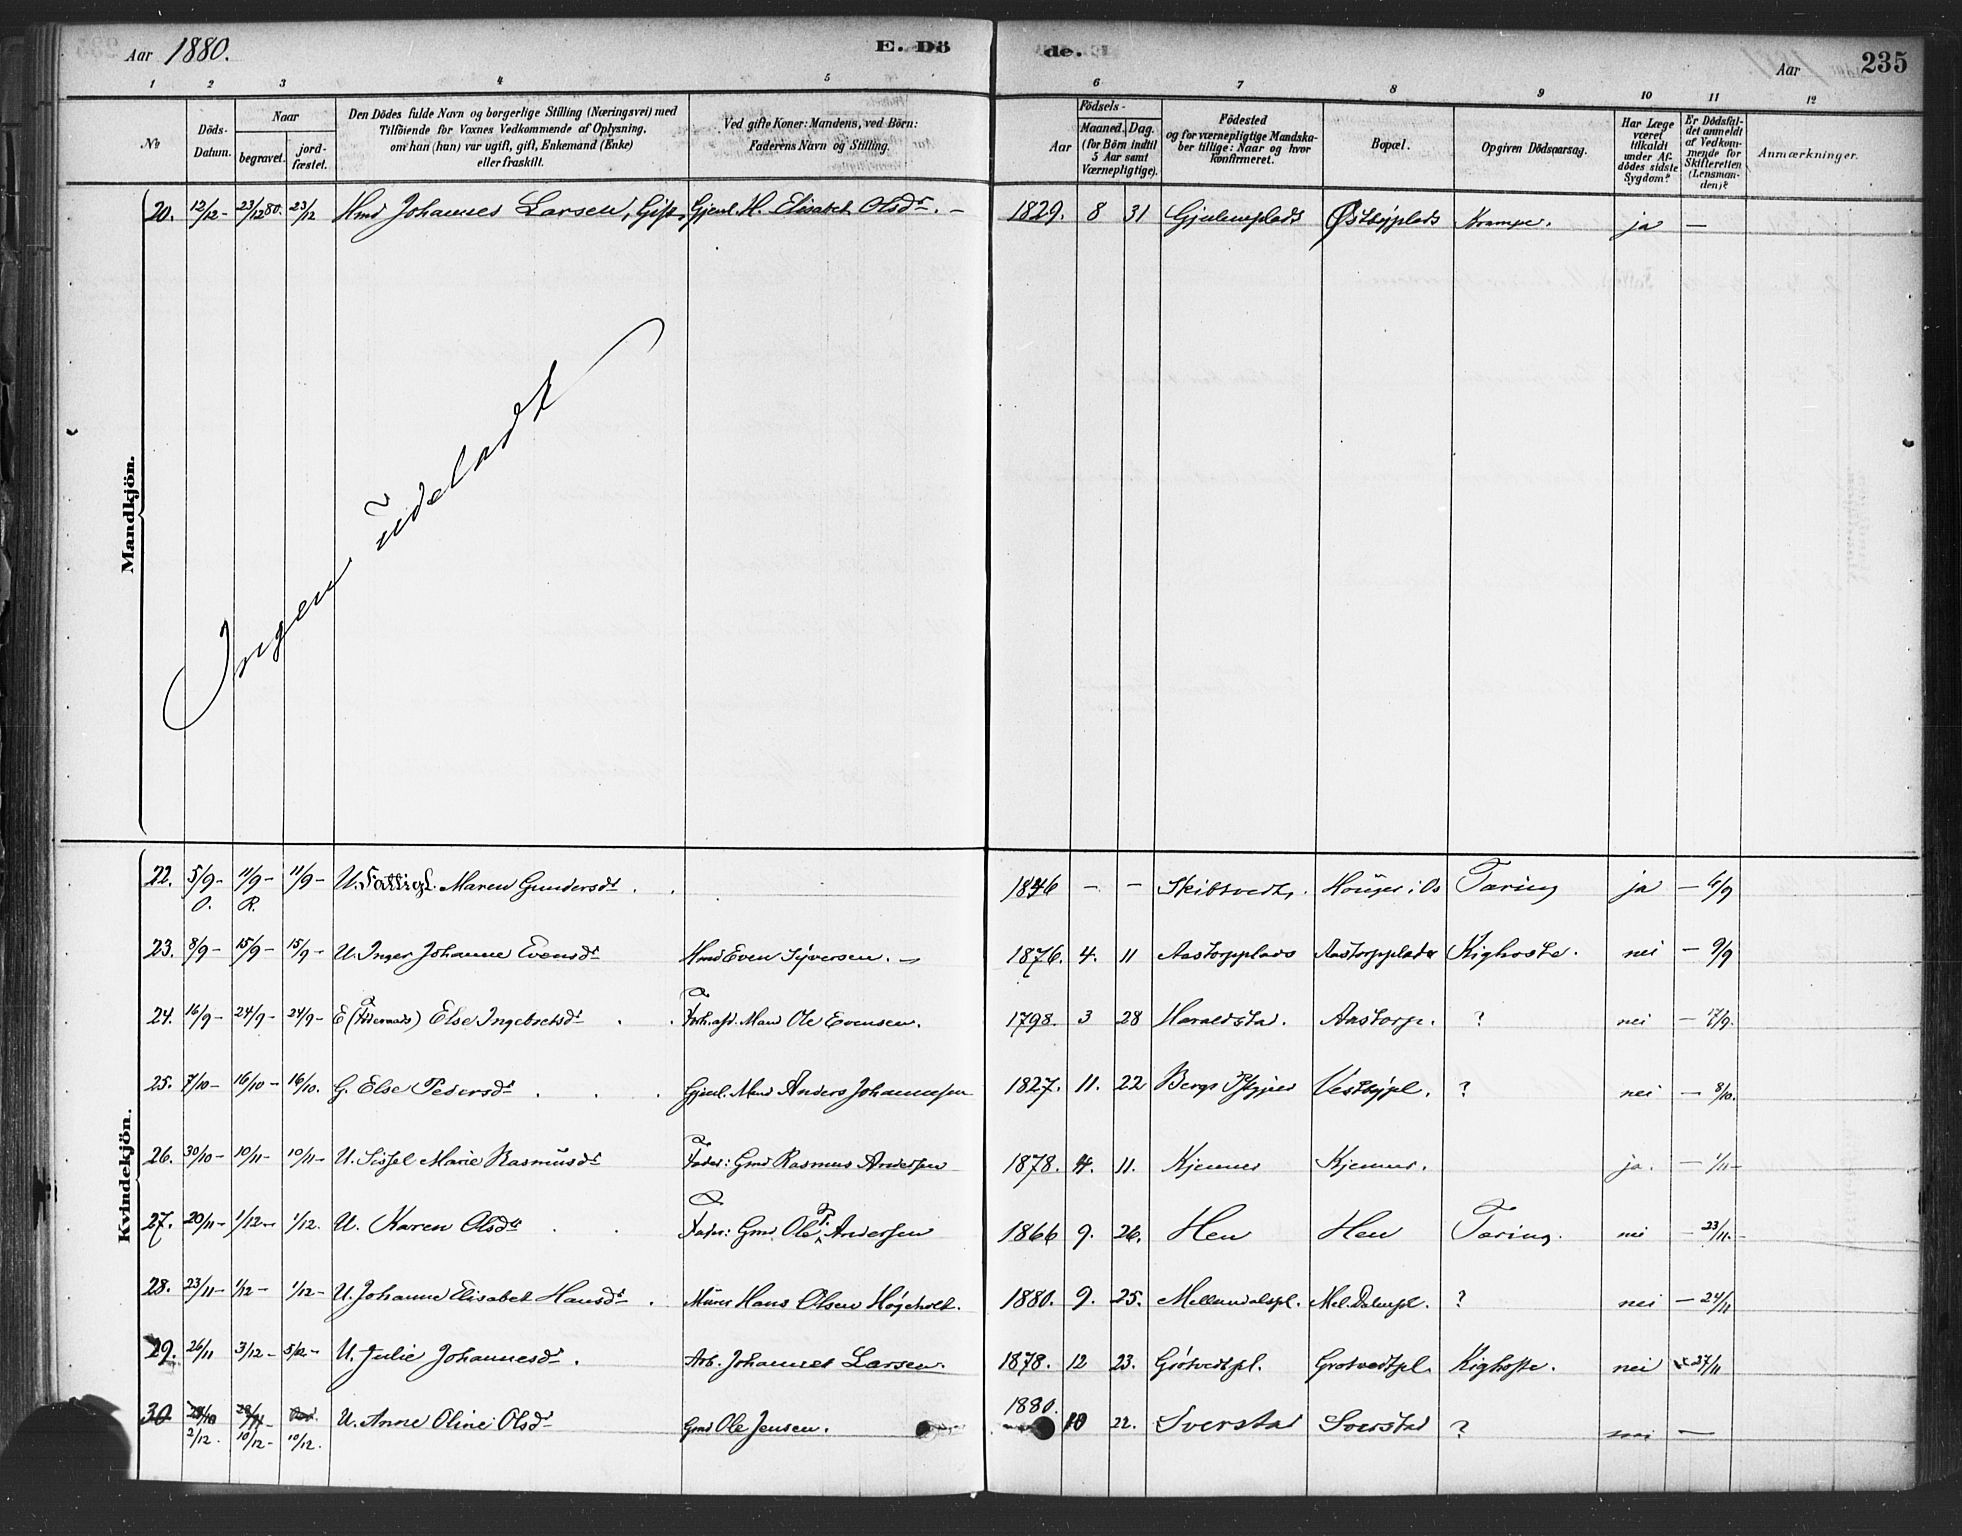 Aar 1880. E. Dö de. Aar 235
1 2 3 4 5 6 7 8 9 10 11 12
№ Döds-Datum. Naar begravet. jord-fæstet. Den Dödes fulde Navn og borgerlige Stilling (Næringsvei) med Tilföiende for Voxnes Vedkommende af Oplysning, om han (hun) var ugift, gift, Enkemand (Enke) eller fraskilt. Ved gifte Koner: Mandens, ved Börn: Faderens Navn og Stilling. Födsels- Aar Maaned. Dag. (for Börn indtil 5 Aar samt Værnepligtige). Födested og for værnepligtige Mandskaber tillige: Naar og hvor konfirmeret. Bopæl. Opgiven Dödsaarsag. Har Læge været tilkaldt under Afdödes sidste Sygdom? Er Dödsfaldet anmeldt af Vedkommende for Skifteretten (Lensmanden)? Anmærkninger.
Mandkjön.
20. 12/12- 23/12 80. 23/12 Hmd Johannes Larsen, Gift, Gjenl. H. Elisabet Olsdr. - 1829. 8 31 Gjulemplads Østbyplads Krampe. ja -
Ingen udeladt
Kvindekjön.
22. 5/9- 11/9- 11/9- U. Fattigl. Maren Gundersdr. 1846 - - Skibtvedt. Houger i Os Tæring ja - 6/9
O. R.
23. 8/9- 15/9- 15/9- U. Inger Johanne Evensdr Hmd Even Syversen. - 1876. 4. 11 Aastorpplads Aastorpplads Kighoste. nei - 9/9
24. 16/9- 24/9- 24/9- E (Føderaads) Else Ingebretsdr. Forh. afd. Man Ole Evensen. 1798. 3 28 Haraldstad. Aastorp. ? nei - 17/9.
25. 7/10- 16/10- 16/10. G. Else Pedersdr. Gjenl. Man Anders Johannessen 1827. 11. 22 Bergs Vestbypl. ? nei - 8/10.
26. 30/10- 10/11- 10/11- U. Sissel Marie Rasmusdr Fader: Gmd Rasmus Andersen 1878. 4. 11. Kjennes Kjennes. ja. - 1/11-
27. 20/11- 1/12- 1/12. U. Karen Olsdr. Fader: Gmd. Ole P. Andersen 1866 9. 26. Hen Hen Tæring. nei - 23/11.-
28. 23/11- 1/12- 1/12- U. Johanne Elisabet Hansdr. Murer Hans Olsen Højeholt. 1880. 9. 25. Mellemdalspl. Mel. Dalenpl. ? nei - 24/11
29. 26/11 3/12- 5/12- U. Julie Johannesdr. Arb. Johannes Larsen. 1878. 12 23. Grøtvedtpl. Grotvedtpl. Kighoste. nei 27/11
30 28/10 U. Anne Oline Olsdr Gmd Ole Jensen. 1880. 10 22. Sverstad Sverstad ? nei -
2/12. 10/12- 10/12.